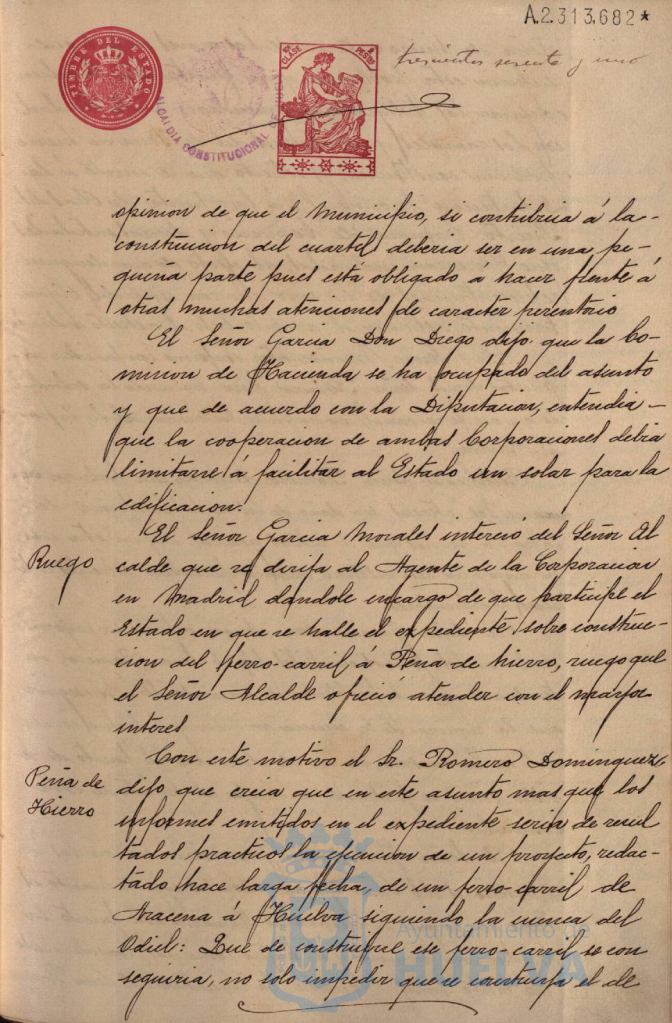 A.2.313.682*
TIMBRE DEL ESTADO
10ª CLASE
PESETAS
ALCALDIA CONSTITUCIONAL DE
trescientos sesenta y uno
opinion de que el Municipio, si contribuia á la
construccion del cuartel deberia ser en una pe-
queña parte pues está obligado á hacer frente á
otras muchas atenciones de caracter perentorio
El Señor Garcia Don Diego dijo que la Co-
mision de Hacienda se ha ocupado del asunto
y que de acuerdo con la Diputacion, entendia
que la cooperacion de ambas Corporaciones debia
limitarse á facilitar al Estado un solar para la
edificacion.
Ruego
El Señor Garcia Morales interesó del Señor Al
calde que se dirija al Agente de la Corporacion
en Madrid dandole encargo de que participe el
Estado en que se halle el expediente sobre construc-
cion del ferro-carril á Peña de hierro, ruego que
el Señor Alcalde ofreció atender con el mayor
interes
Peña de
Hierro
Con este motivo el Sr. Romero Dominguez,
dijo que creia que en este asunto mas que los
informes emitidos en el expediente seria de resul
tados practicos la ejecucion de un proyecto, redac-
tado hace larga fecha, de un ferro-carril de
Aracena á Huelva siguiendo la cuenca del
Odiel: Que de construirse ese ferro-carril se con
seguiria, no solo impedir que se construya el de
Ayuntamiento de
HUELVA